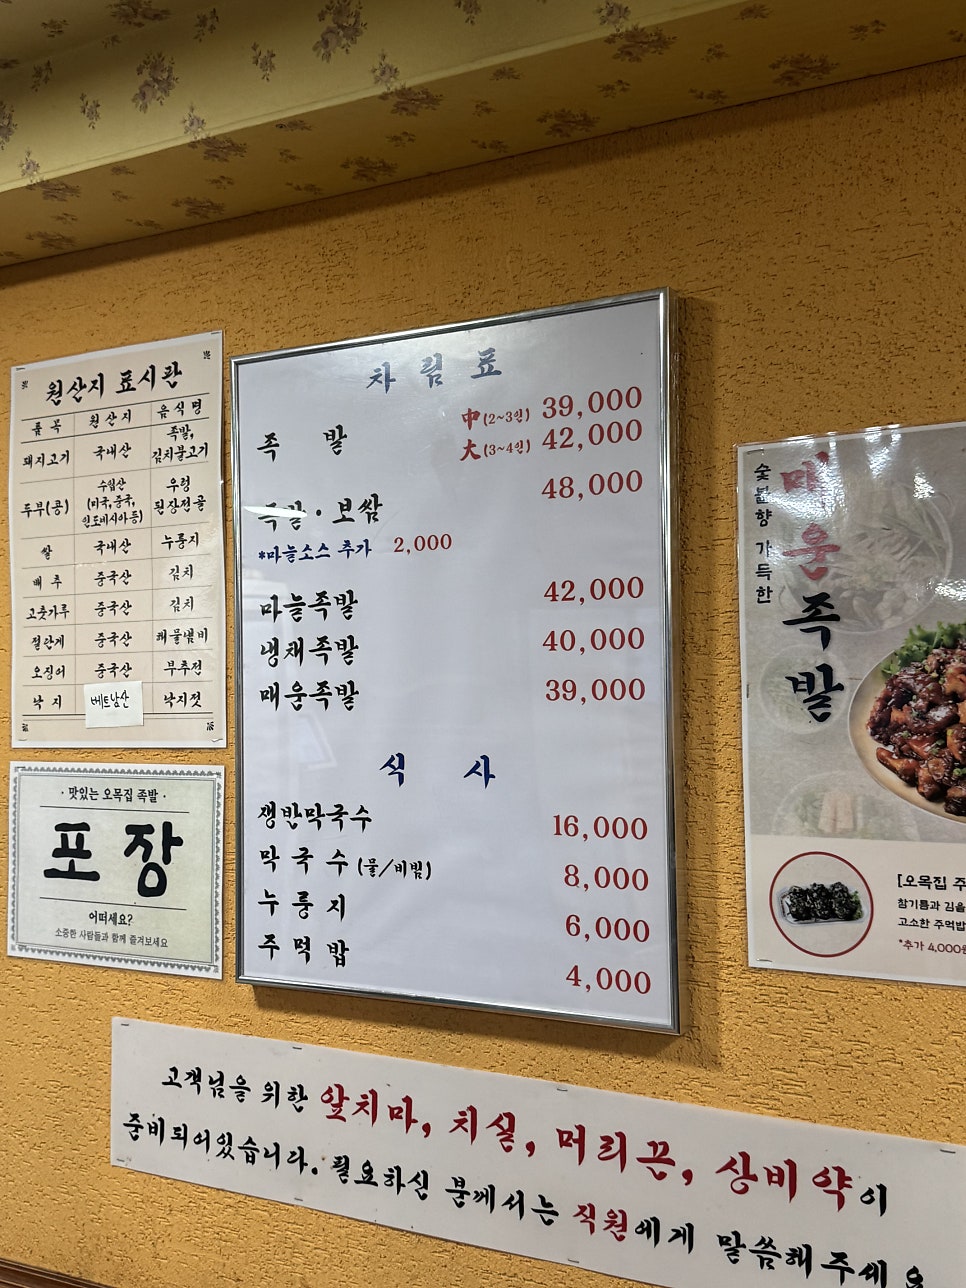 차림표
족발 中(2~3인) 39,000
大(3~4인) 42,000
족발·보쌈 48,000
*마늘소스 추가 2,000
마늘족발 42,000
냉채족발 40,000
매운족발 39,000
식사
쟁반막국수 16,000
막국수(물/비빔) 8,000
누룽지 6,000
주먹밥 4,000
원산지 표시판
품목 원산지 음식명
돼지고기 국내산 족발, 김치불고기
두부(콩) 수입산 (미국, 중국, 인도네시아 등) 우렁 된장전골
쌀 국내산 누룽지
배추 중국산 김치
고춧가루 중국산 김치
절단게 중국산 해물냄비
오징어 중국산 부추전
낙지 베트남산 낙지젓
·맛있는 오목집 족발·
포장
어떠세요?
소중한 사람들과 함께 즐겨보세요
숯불향 가득한
매운족발
[오목집 주
참기름과 김을
고소한 주먹밥
*추가 4,000원
고객님을 위한 앞치마, 치실, 머리끈, 상비약이
준비되어있습니다. 필요하신 분께서는 직원에게 말씀해주세요